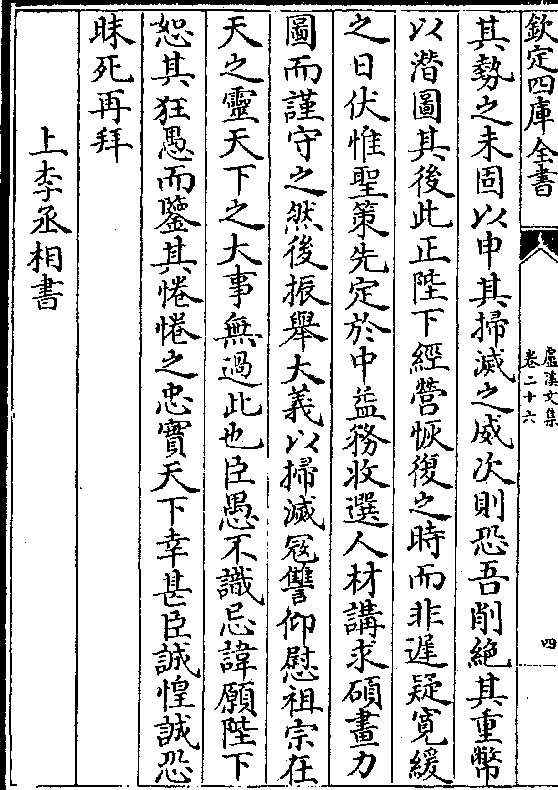 欽定四庫全書
盧溪文集
卷二十六
四
其勢之未固以申其掃滅之威次則恐吾削絶其重幣
以潛圖其後此正陛下經營恢復之時而非遲疑寛緩
之日伏惟聖策先定於中益務收選人材講求碩畫力
圖而謹守之然後振舉大義以掃滅冦讐仰慰祖宗在
天之靈天下之大事無過此也臣愚不識忌諱願陛下
恕其狂愚而鑒其惓惓之忠實天下幸甚臣誠惶誠恐
昧死再拜
上李丞相書